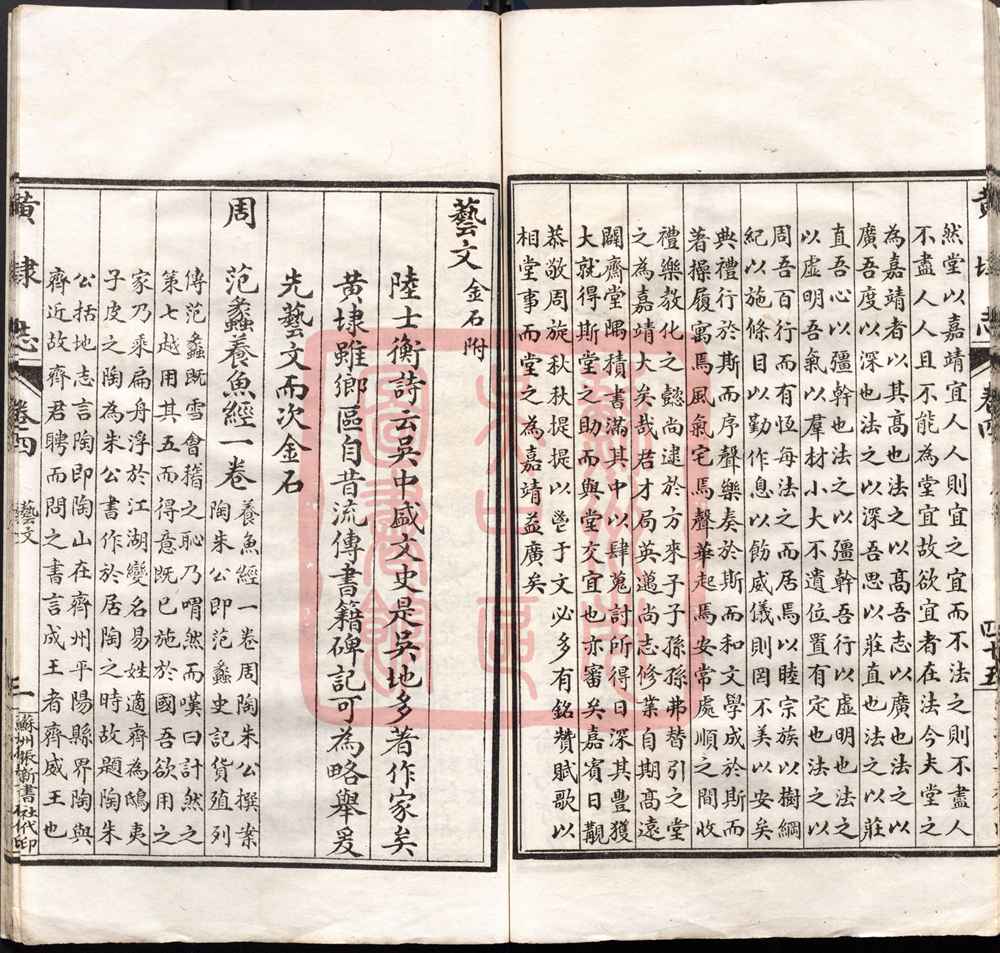 黃埭志 卷四 四十五
然堂以嘉靖宜人人則宜之宜而不法之則不盡人
不盡人人且不能為堂宜故欲宜者在法今夫堂之
為嘉靖者以其高也法之以高吾志以廣也法之以
廣吾度以深也法之以深吾思以莊直也法之以莊
直吾心以彊幹也法之以彊幹吾行以虛明也法之
以虛明吾氣以羣材小大不遺位置有定也法之以
周吾百行而有恆每法之而居焉以睦宗族以樹綱
紀以施條目以勤作息以飭威儀則罔不美以安矣
典禮行於斯而序聲樂奏於斯而和文學成於斯而
著操履寓焉風氣宅焉聲華起焉安常處順之間收
禮樂教化之懿尚逮於方來子子孫孫弗替引之堂
之為嘉靖大矣哉君才局英邁尚志修業自期高遠
闢齋堂隅積書滿其中以肆蒐討所得日深其豐獲
大就得斯堂之助而與堂交宜也亦審矣嘉賓日覯
恭敬周旋秋秋提提以鬯于文必多有銘贊賦歌以
相堂事而堂之為嘉靖益廣矣
藝文 金石附
陸士衡詩云吳中盛文史是吳地多著作家矣
黃埭雖鄉區自昔流傳書籍碑記可為略舉爰
先藝文而次金石
周
范蠡養魚經一卷
養魚經一卷周陶朱公撰案
陶朱公即范蠡史記貨殖列
傳范蠡既雪會稽之恥乃喟然而嘆曰計然之
策七越用其五而得意既已施於國吾欲用之
家乃乘扁舟浮於江湖變名易姓適齊為鴟夷
子皮之陶為朱公書作於居陶之時故題陶朱
公括地志言陶即陶山在齊州平陽縣界陶與
齊近故齊君聘而問之書言成王者齊威王也
黃埭志 卷四 藝文 一 蘇州振新書社代印
吳中區
圖書館